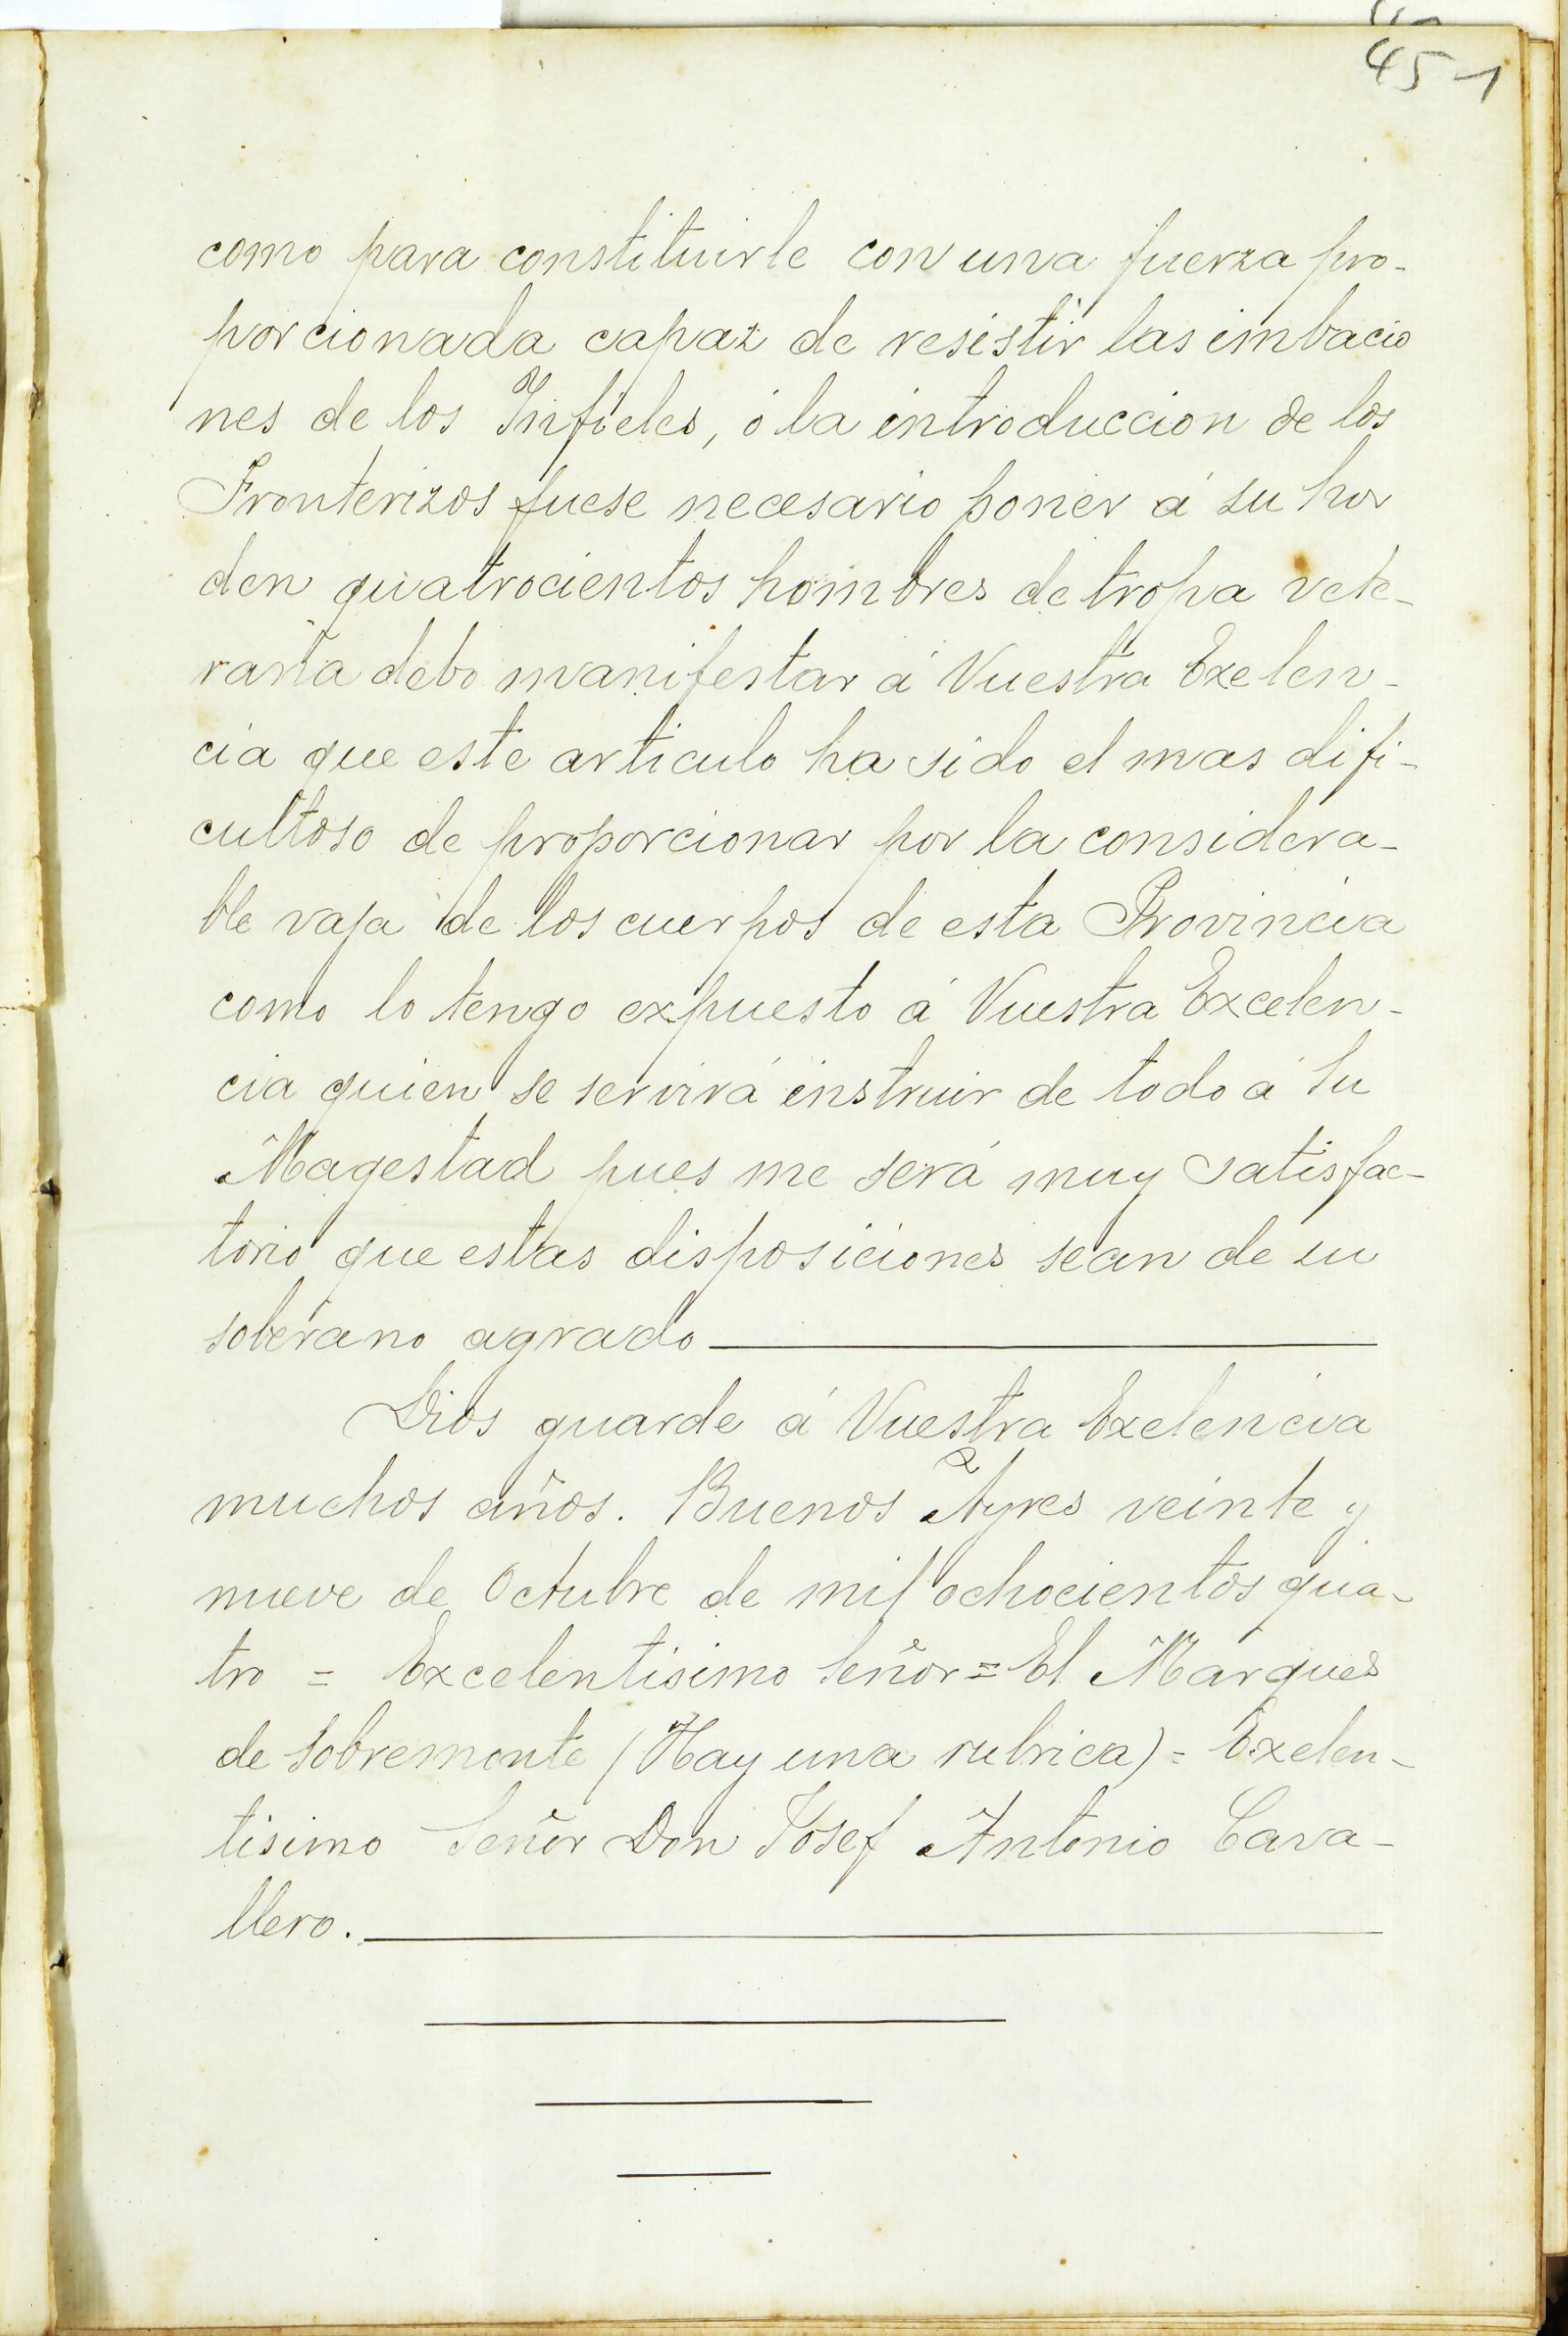 45-1
como para constituirle con una fuerza pro-
porcionada capaz de resistir las imbacio
nes de los Infieles, ó la introduccion de los
Fronterizos fuese necesario poner á su hor
den quatrocientos hombres de tropa vete-
rana debo manifestar á Vuestra Exelen-
cia que este articulo ha sido el mas difi-
cultoso de proporcionar por la considera-
ble vaja de los cuerpos de esta Provincia
como lo tengo expuesto á Vuestra Excelen-
cia quien se servirá instruir de todo á Su
Magestad pues me será muy satisfac-
torio que estas disposiciones sean de su
soberano agrado
Dios guarde á Vuestra Exelencia
muchos años. Buenos Ayres veinte y
nueve de Octubre de mil ochocientos qua-
tro = Excelentisimo Señor = El Marques
de Sobremonte (Hay una rubrica) = Exelen-
tisimo Señor Don Josef Antonio Cava-
llero.